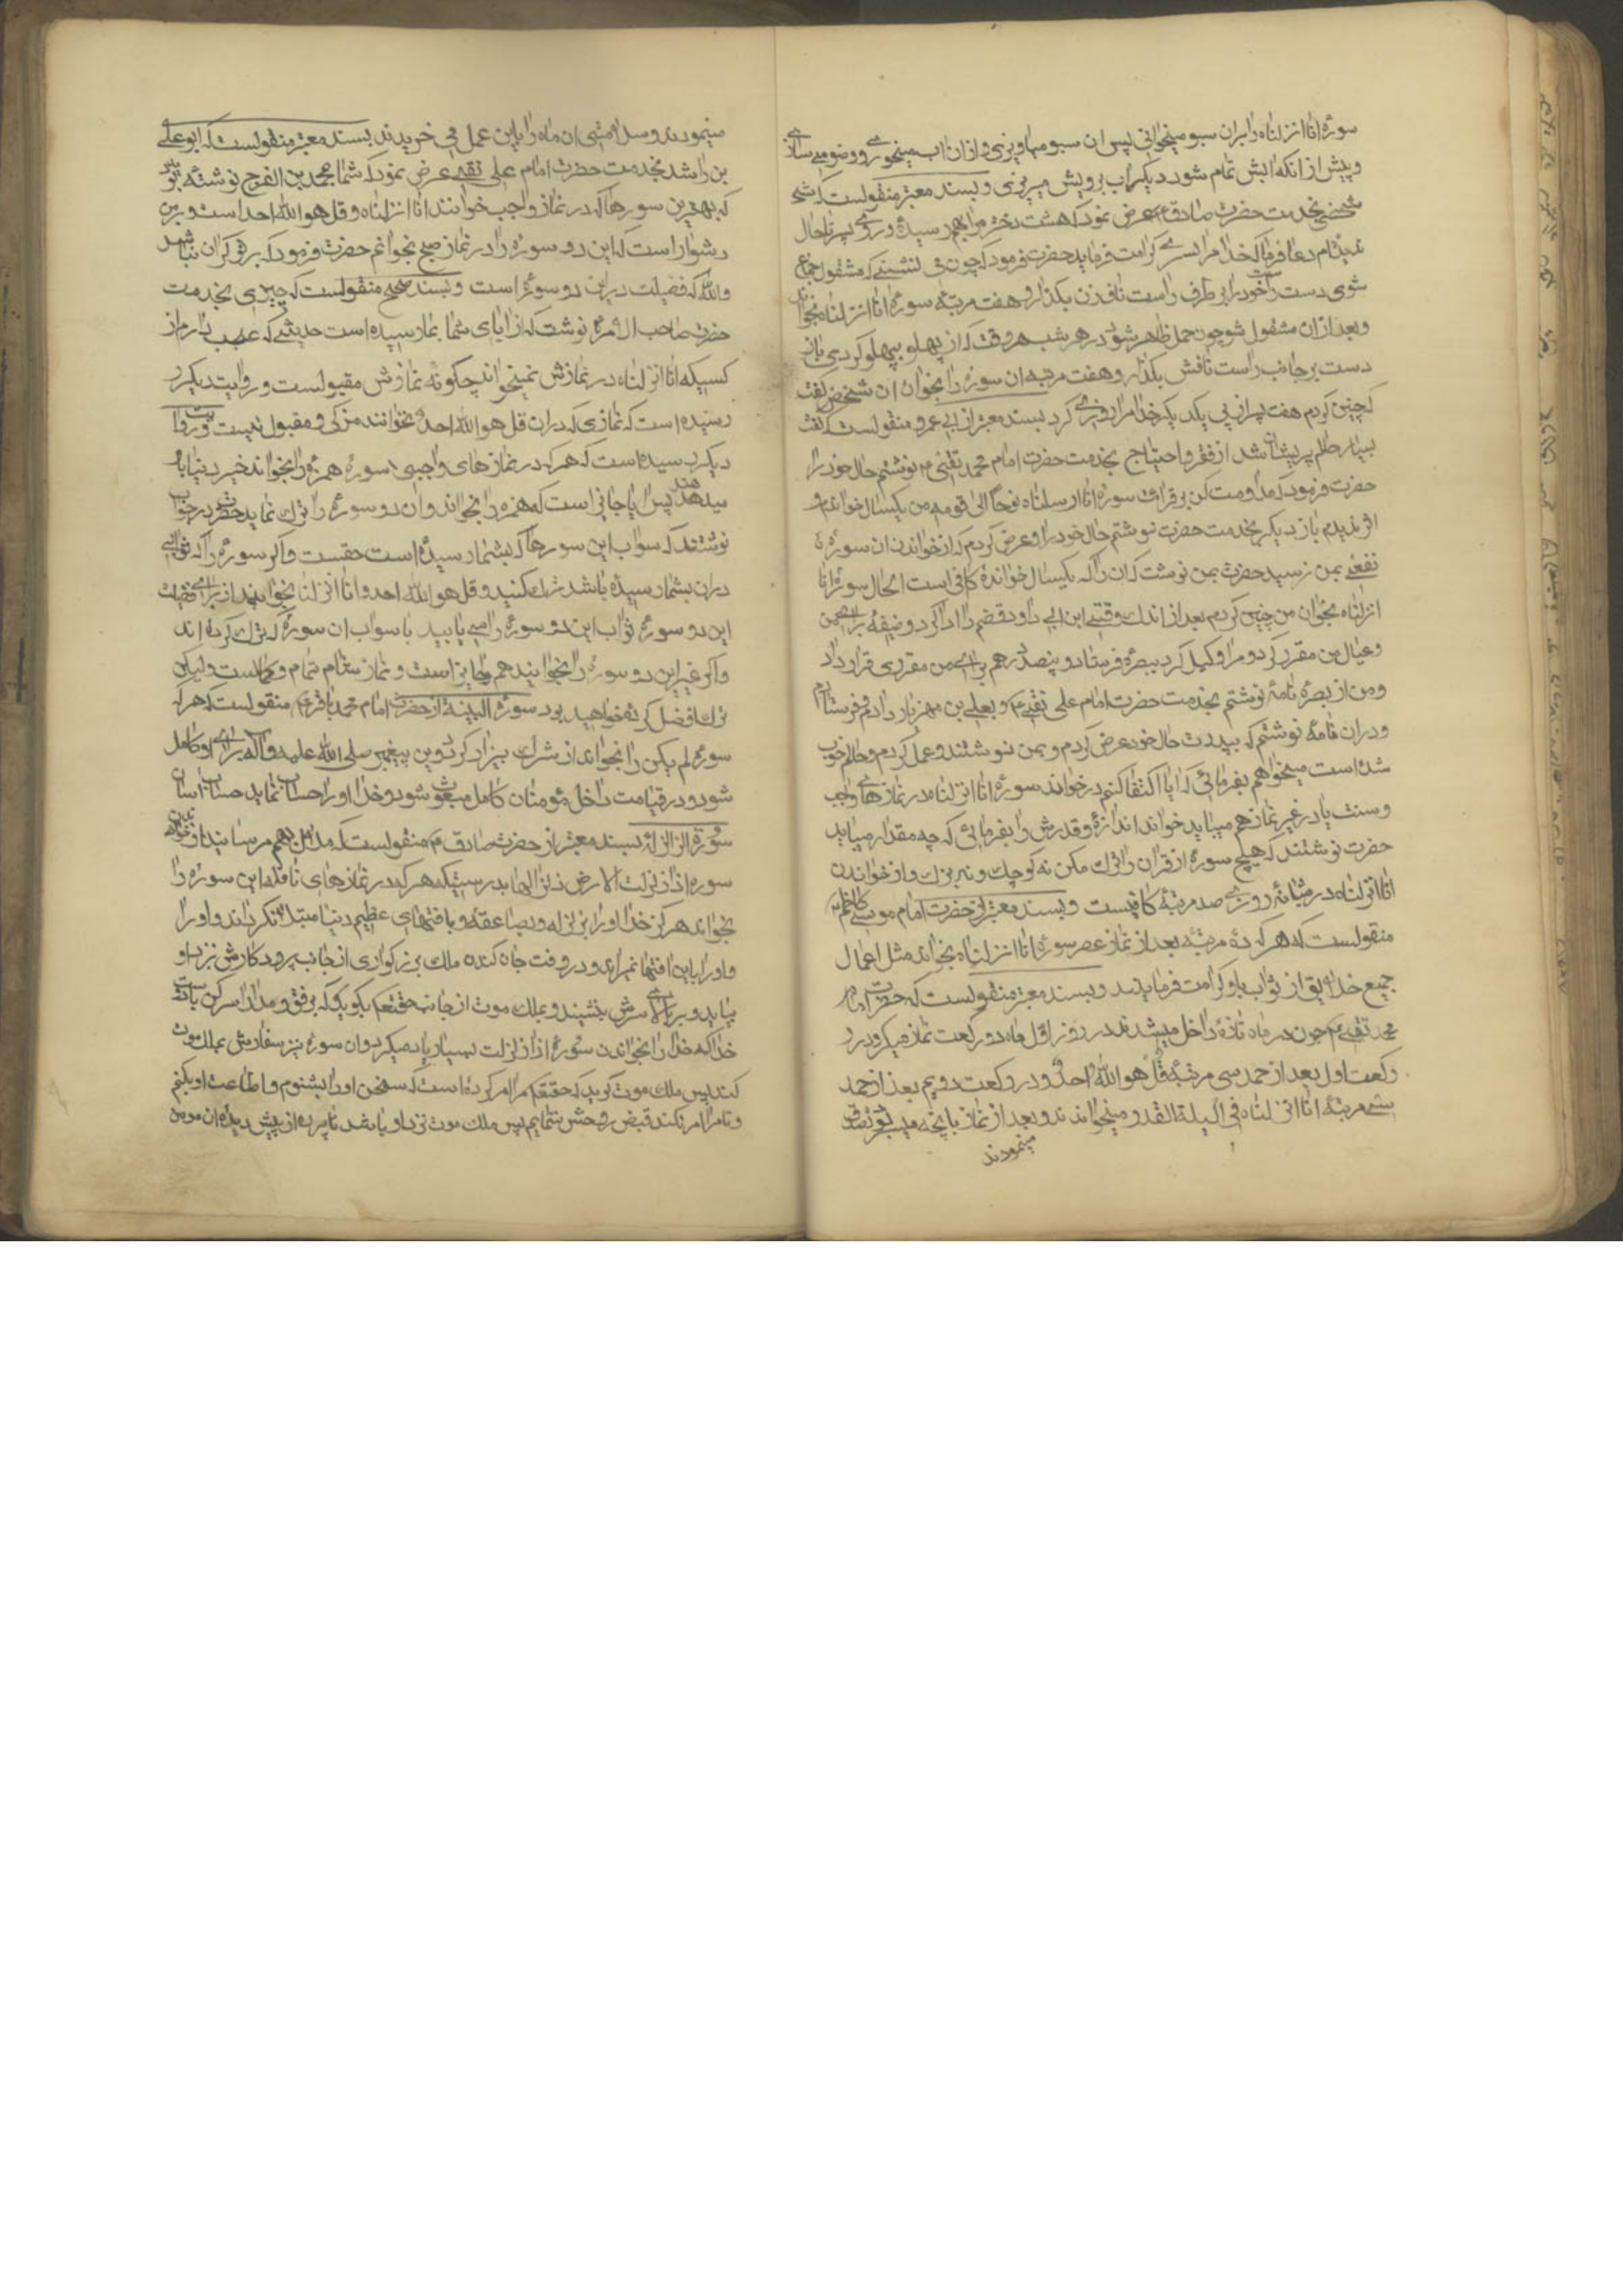 سورهٔ انا انزلناه را بران سبو میخوانی پس ان سبو میاویزی و ازان اب میخوری و وضو می سازی
و پیش از انکه ابش تمام شود دیکر اب برویش میریزی و بسند معتبر منقولست که
شخصی بخدمت حضرت صادق عرض نمود که هشت دختر مرا بهم رسیده و روی پسر تا حال
ندیده‌ام دعا فرما که خدا مرا پسری کرامت فرماید حضرت فرمود که چون می نشینی که مشغول جماع
شوی دست راست خود را بر طرف راست ناف زن بکذار و هفت مرتبه سورهٔ انا انزلناه بخوان
و بعد ازان مشغول شو چون حمل ظاهر شود در هر شب هر وقت که از پهلو بپهلو کردی باز
دست بر جانب راست نافش بکذار و هفت مرتبه ان سوره را بخوان ان شخص کفت
که چنین کردم هفت پسر از پی یکدیکر خدا مرا روزی کرد بسند معتبر از ابی عمرو منقولست که کفت
بسیار حالم پریشان شد از فقر و احتیاج بخدمت حضرت امام محمد تقی نوشتم حال خود را
حضرت فرمود که مداومت کن بر قرائت سوره انا ارسلناه نوحا الی قومه من یکسال خواندم و
اثر ندیدم باز دیکر بخدمت حضرت نوشتم حال خود را و عرض کردم که از خواندن ان سوره
نفعی بمن نرسید حضرت بمن نوشت که ان را که یکسال خواندهٔ کافی است الحال سورهٔ انا
انزلناه بخوان من چنین کردم بعد از اندک وقتی ابن ابی داود قضم را ادا کرد و وضیفهٔ برای من
و عیال من مقرر کرد و مرا وکیل کرد ببصره فرستاد و پنصد درهم برای من مقرری قرار داد
و من از بصره نامهٔ نوشتم بخدمت حضرت امام علی نقی و بعلی بن مهزیار دادم و فرستادم
و دران نامهٔ نوشتم که بپدرت حال خود عرض کردم و بمن نوشتند و عمل کردم و حالم خوب
شده است میخواهم بفرمائی که ایا اکتفا کنم در خواند سورهٔ انا انزلناه در نمازهای واجب
و سنت یا در غیر نماز هم میباید خواند اندازه و قدرش را بفرمائی که چه مقدار میباید
حضرت نوشتند که هیچ سوره از قران را ترک مکن نه کوچک و نه بزرک و از خواندن
انا انزلناه در شبانه روزی صد مرتبه کافیست و بسند معتبر از حضرت امام موسی کاظم
منقولست که هر که ده مرتبه بعد از نماز عصر سورهٔ انا انزلناه بخواند مثل اعمال
جمیع خلایق از ثواب باو کرامت فرمایند و بسند معتبر منقولست که حضرت امام
محمد تقی چون در ماه تازه داخل میشدند در روز اول ماه دو رکعت نماز میکرد در
رکعت اول بعد از حمد سی مرتبه قل هو الله احد و در رکعت دویم بعد از حمد
سی مرتبه انا انزلناه فی الیلة القدر میخواندند و بعد از نماز بانچه میسر بود تصدق
مینمودند
مینمودند و سلامتی ان ماه را باین عمل می خریدند بسند معتبر منقولست که ابو علی
بن راشد بخدمت حضرت امام علی نقی عرض نمود که شما بمحمد بن الفرج نوشته بودید
که بهترین سورها که در نماز واجب خوانند انا انزلناه و قل هو الله احد است و بر من
دشوار است که این دو سوره را در نماز صبح بخوانم حضرت فرمود که بر تو کران نباشد
والله که فضیلت در این دو سوره است و بسند صحیح منقولست که حمیری بخدمت
حضرت صاحب الامر نوشت که از ابای شما بما رسیده است حدیثی که عجب دارم از
کسیکه انا انزلناه در نمازش نمیخواند چکونه نمازش مقبولست و روایت دیکر
رسیده است که نمازی که دران قل هو الله احد نخوانند مزکی و مقبول نیست و روایت
دیکر رسیده است که هر که در نمازهای واجبی سوره همزه را بخواند خیر دنیا باو
میدهند پس ایا جائز است که همزه را بخواند و ان دو سوره را ترک نماید حضرت در جواب
نوشتند که سواب این سورها که بشما رسیده است حقست و اکر سوره را که ثوابی
دران بشما رسیده باشد ترک کنید و قل هو الله احد و انا انزلنا بخوانید از برای فضیلت
این دو سوره ثواب این دو سوره را می یابید با سواب ان سوره که ترک کرده اند
و اکر غیر این دو سوره را بخوانید هم جایز است و نماز شام تمام و کاملست ولیکن
ترک افضل کرده خواهید بود سورة البینة از حضرت امام محمد باقر منقولست که هر که
سوره لم یکن را بخواند از شرک بیزار کردد و بدین پیغمبر صلی الله علیه و آله برای او کامل
شود و در قیامت داخل مؤمنان کامل مبعوث شود و خدا او را حساب نماید حساب اسان
سورة الزلزلة بسند معتبر از حضرت صادق منقولست که ملال بهم مرسانید از خواندن
سوره اذا زلزلت الارض زلزالها بدرستیکه هر که در نمازهای نافله این سوره را
بخواند هرکز خدا او را بزلزله و بصاعقه و بافتهای عظیم دنیا مبتلا نکرداند و او را
و او را باین افتها نمیراند و در وقت جان کندن ملک بزرکواری از جانب پروردکارش نزد او
بیاید و بر بالای سرش بنشیند و بملک موت از جانب حقتعم بکوید که برفق و مدارا سر کن با دوست
خدا که خدا را بخواندن سورهٔ اذا زلزلت بسیار یاد میکرد و ان سوره نیز سفارش بملک موت
کند پس ملک موت کوید که حقتعم مرا امر کرده است که سخن او را بشنوم و اطاعت او بکنم
و تا مرا امر نکند قبض روحش ننمایم پس ملک موت نزد او باشد تا پرده از پیش دیده ان مومن